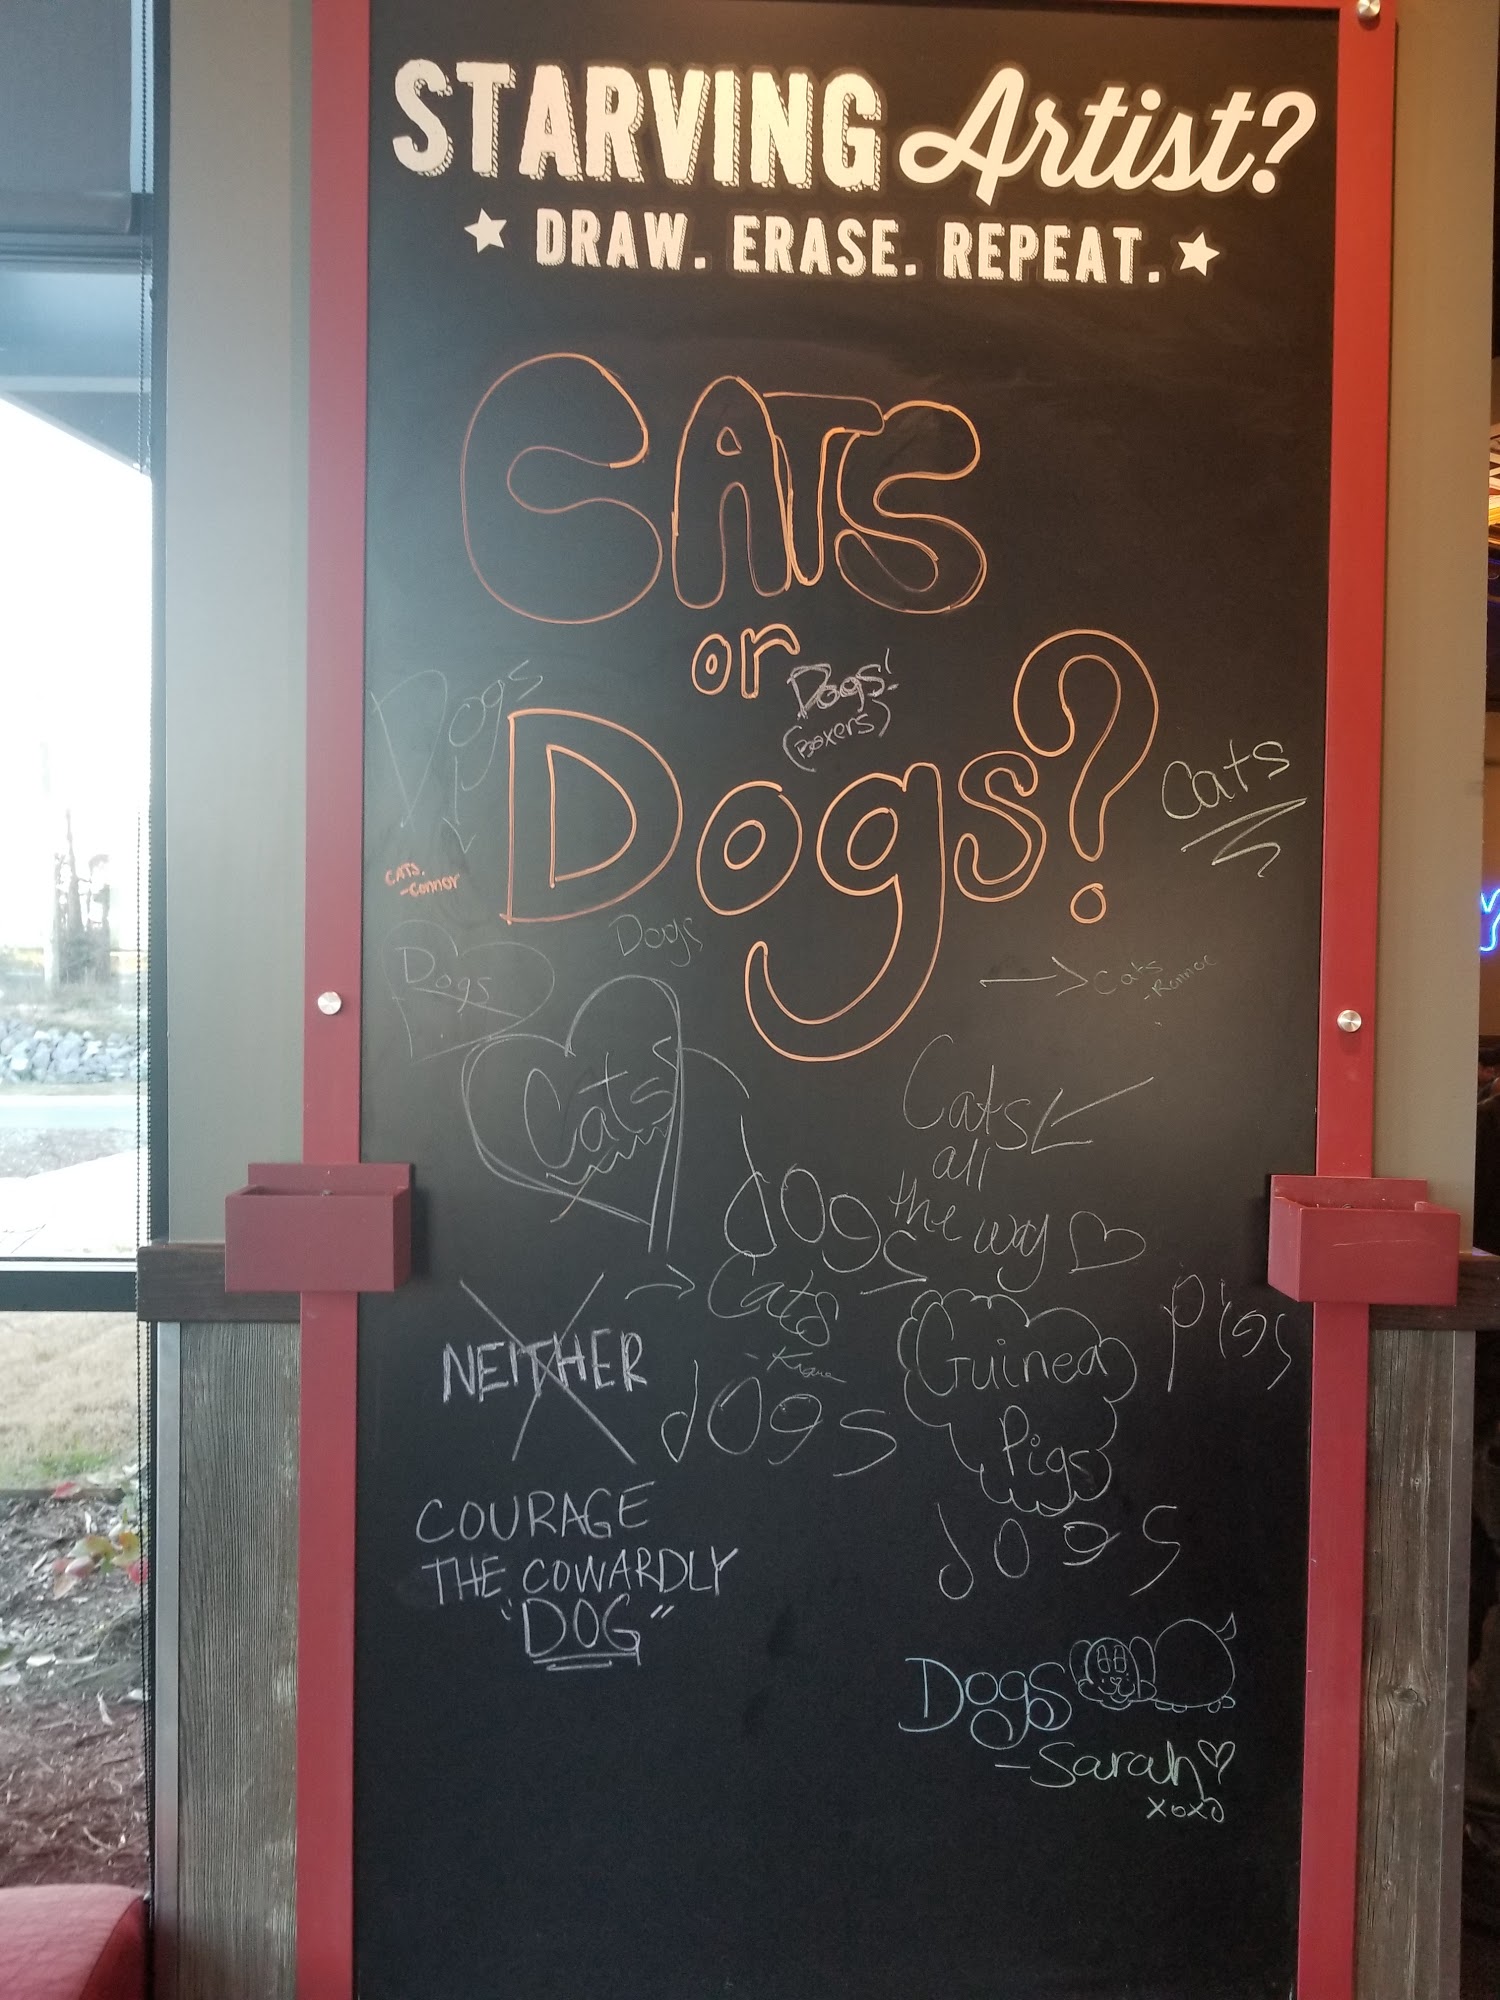 STARVING Artist?
DRAW. ERASE. REPEAT.
CATS
or
Dogs!
(Boxers)
Dogs
Dogs?
Cats
CATS.
-Connor
Dogs
Dogs
Cats
Cats
Cats
all
the way
dogs
Cats
NEITHER
Guinea
Pigs
Pigs
dogs
COURAGE
THE COWARDLY
"DOG"
dogs
Dogs
-Sarah
xoxo